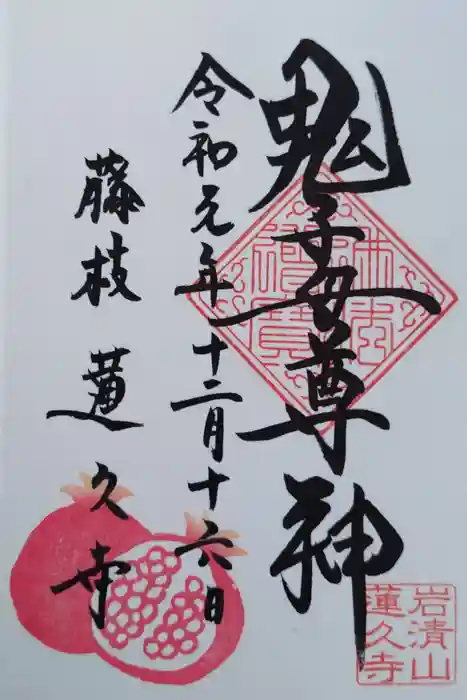 鬼子母尊神
令和元年十二月十六日
藤枝 蓮久寺
岩清山
蓮久寺